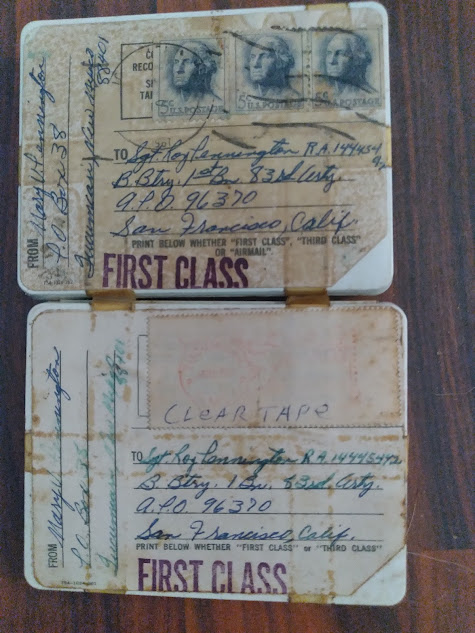 FROM Mary Pennington
P.O. Box 38
Tucumcari, New Mexico
88401
RECO
TA
5¢ U.S. POSTAGE
5¢ U.S. POSTAGE
5¢ U.S. POSTAGE
TO Sgt Roy Pennington R.A.
B. Btry. 1st Bn. 83rd Arty.
A.P.O. 96370
San Francisco, Calif.
PRINT BELOW WHETHER "FIRST CLASS", "THIRD CLASS"
OR "AIRMAIL"
FIRST CLASS
FROM Mary Pennington
P.O. Box 38
Tucumcari, New Mexico
88401
CLEAR TAPE
TO Sgt. Roy Pennington R.A.
B. Btry. 1 Bn. 83rd Arty.
A.P.O. 96370
San Francisco, Calif.
PRINT BELOW WHETHER "FIRST CLASS" or "THIRD CLASS"
FIRST CLASS